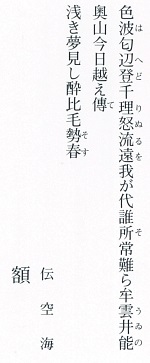 はへどりぬるをそうゐの
色波匂辺登千理怒流遠我が代誰所常難ら牟雲井能
て
奥山今日越え傳
そす
浅き夢見し酔比毛勢春
伝 空 海
額